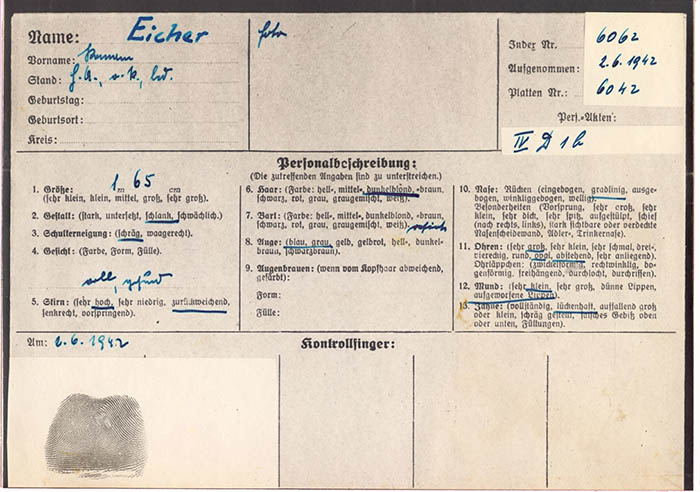 Name: Eicher
Vorname:
Stand:
Geburtstag:
Geburtsort:
Kreis:
foto
Index Nr. 6062
Aufgenommen: 2.6.1942
Platten Nr.: 6042
Pers.-Akten:
IV D 1 b
Personalbeschreibung:
(Die zutreffenden Angaben sind zu unterstreichen.)
1. Größe: 1 m 65 cm
(sehr klein, klein, mittel, groß, sehr groß).
2. Gestalt: (stark, untersetzt, schlank, schwächlich.)
3. Schulterneigung: (schräg, waagerecht).
4. Gesicht: (Farbe, Form, Fülle).
voll, gesund
5. Stirn: (sehr hoch, sehr niedrig, zurückweichend,
senkrecht, vorspringend).
6. Haar: (Farbe: hell-, mittel-, dunkelblond, -braun,
schwarz, rot, grau, graugemischt, weiß).
7. Bart: (Farbe: hell-, mittel-, dunkelblond, -braun,
schwarz, rot, grau, graugemischt, weiß) rasiert
8. Auge: (blau, grau, gelb, gelbrot, hell-, dunkel-
braun, schwarzbraun).
9. Augenbrauen: (wenn vom Kopfhaar abweichend,
gefärbt):
Form:
Fülle:
10. Nase: Rücken (eingebogen, gradlinig, ausge-
bogen, winkliggebogen, wellig).
Besonderheiten (Vorsprung, sehr groß, sehr
klein, sehr dick, sehr spitz, aufgestülpt, schief
(nach rechts, links), stark sichtbare oder verdeckte
Nasenscheidewand, Adler-, Trinkernase).
11. Ohren: (sehr groß, sehr klein, sehr schmal, drei-,
viereckig, rund, oval, abstehend, sehr anliegend).
Ohrläppchen: (zwickelförmig, rechtwinklig, bo-
genförmig, freihängend, durchlocht, durchrissen).
12. Mund: (sehr klein, sehr groß, dünne Lippen,
aufgeworfene Lippen).
13. Zähne: (vollständig, lückenhaft, auffallend groß
oder klein, schräg gestellt, falsches Gebiß oben
oder unten, Füllungen).
Am: 2.6.1942
Kontrollfinger: